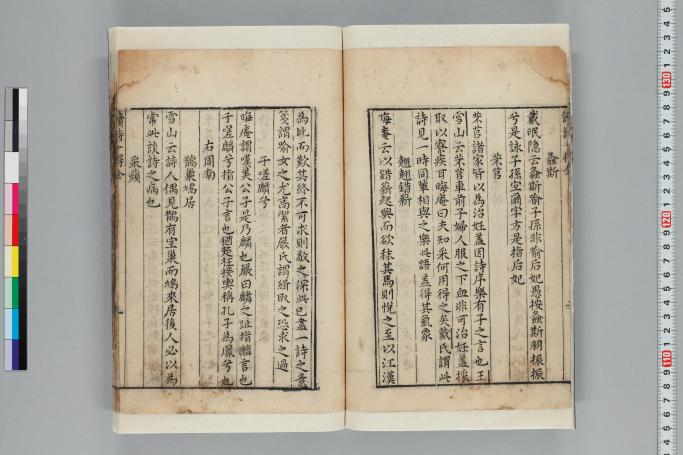 螽斯
戴岷隐云螽斯喻子孫非喻后妃愚按螽斯羽振振
兮是詠子孫室爾字方是指后妃
芣苢
芣苢諸家皆以為治妊蓋因詩序樂有子之言也王
雪山云芣苢車前子婦人服之下血非可治妊蓋採
取以療疾耳晦庵曰夫知采何用得之矣戴氏謂此
詩見一時同輩相與之樂此語蓋得其氣象
翹翹錯薪
晦菴云以錯薪起興而欲秣其馬則悅之至以江漢
為比而歎其終不可求則敬之深此已盡一詩之意
箋謂喻女之尤高潔者嚴氏謂緝取之恐求之過
于嗟麟兮
晦庵謂嘆美公子是乃麟也嚴曰麟之趾指麟言也
于嗟麟兮指公子言也猶楚狂接輿稱孔子為鳳兮也
右周南
鵲巢鳩居
雪山云詩人偶見鵲有空巢而鳩來居後人必以為
常此談詩之病也
采蘋
讀詩一得全